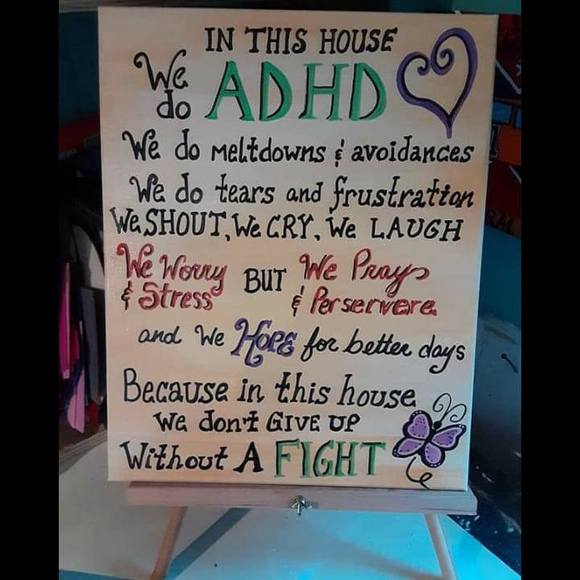 IN THIS HOUSE
We do ADHD
We do meltdowns & avoidances
We do tears and frustration
We SHOUT, We CRY, We LAUGH
We Worry & Stress BUT We Pray & Perservere
and We HOPE for better days
Because in this house
We don't GIVE UP
Without A FIGHT